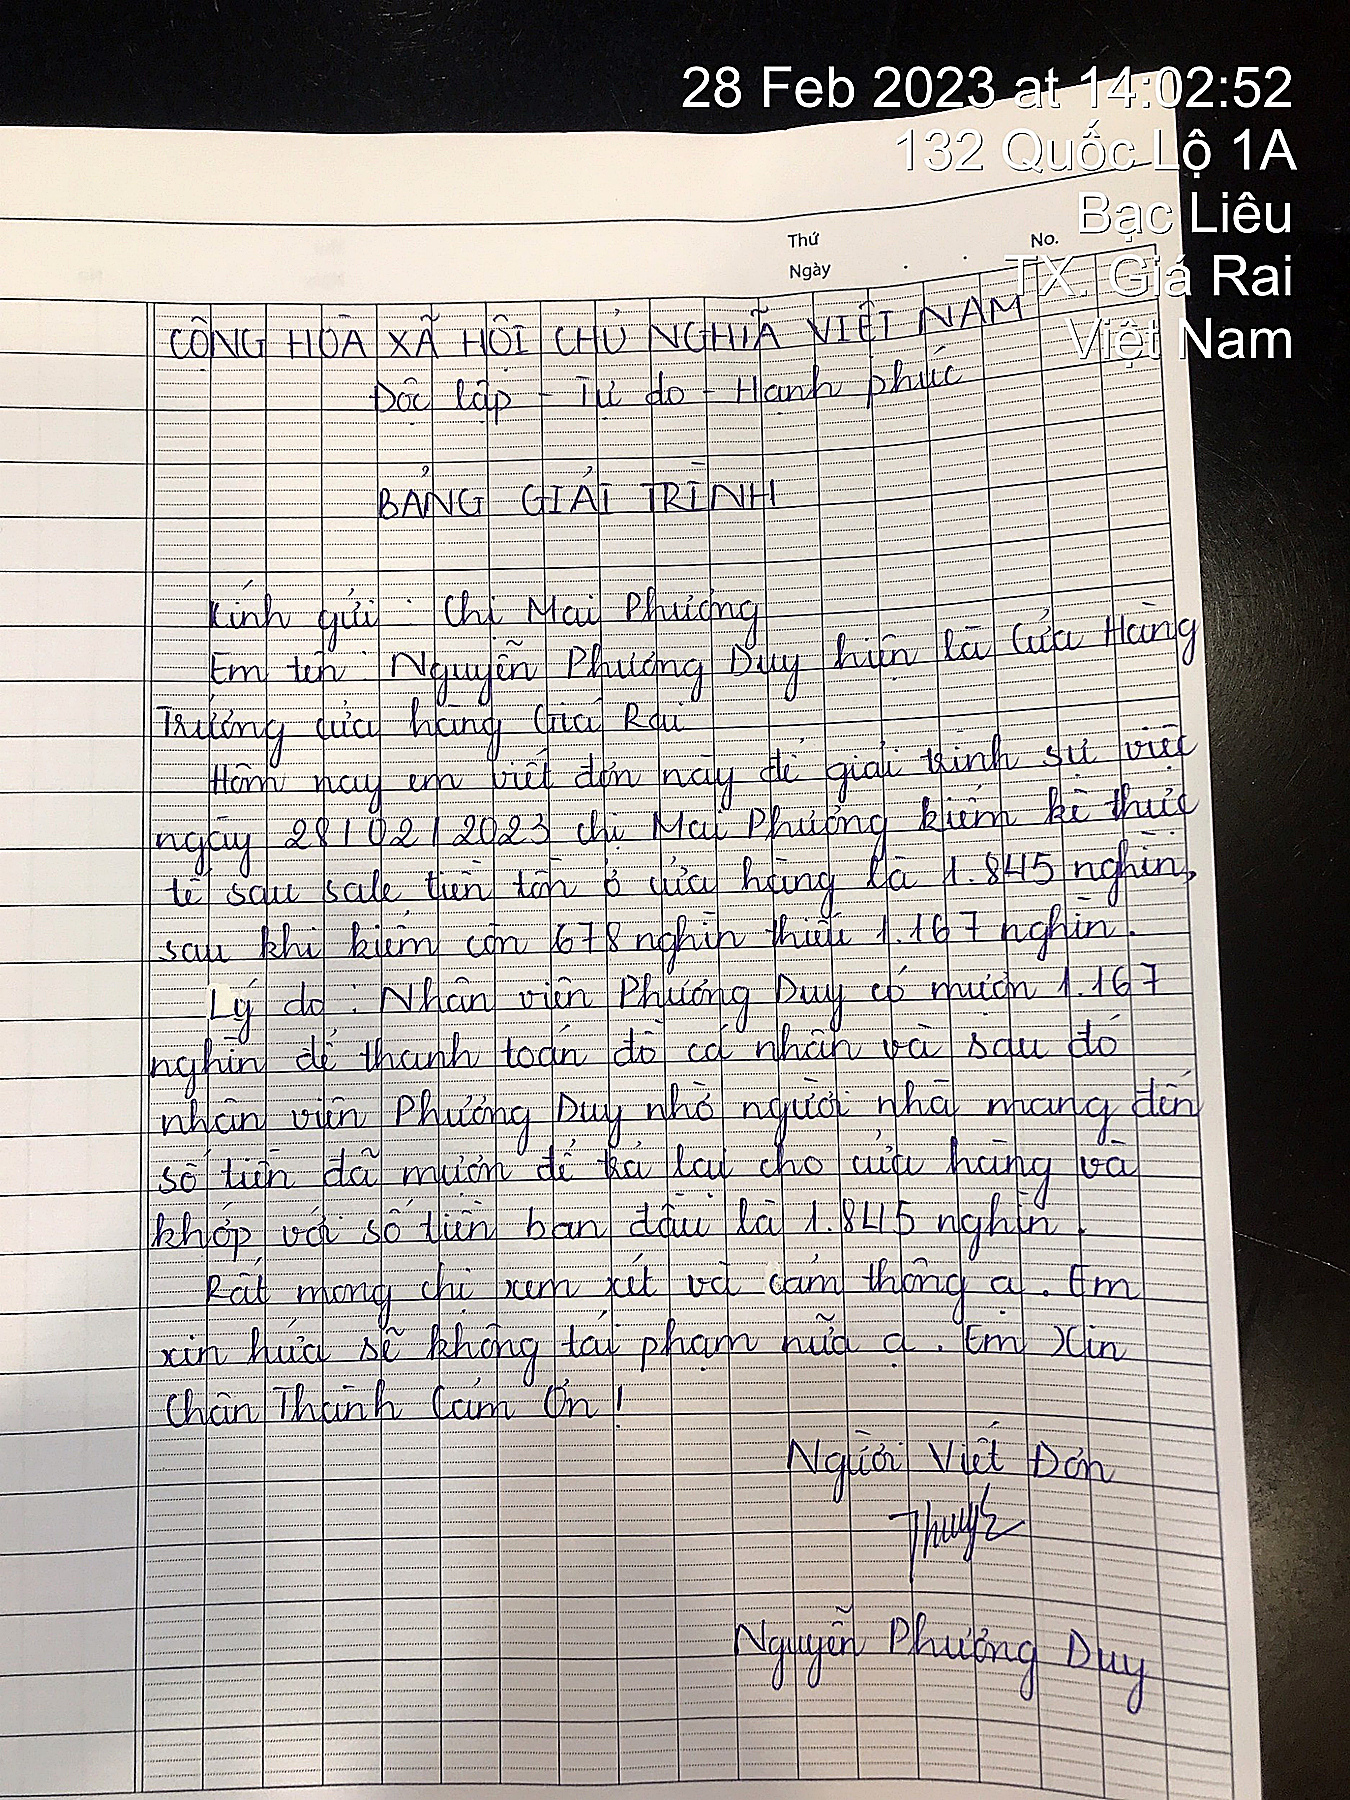 28 Feb 2023 at 14:02:52
132 Quốc Lộ 1A
Bạc Liêu
TX. Giá Rai
Việt Nam
Thứ
No.
Ngày
CỘNG HÒA XÃ HỘI CHỦ NGHĨA VIỆT NAM
Độc lập - Tự do - Hạnh phúc
BẢNG GIẢI TRÌNH
Kính gửi : Chị Mai Phương
Em tên : Nguyễn Phương Duy hiện là Cửa Hàng
Trưởng cửa hàng Giá Rai
Hôm nay em viết đơn này để giải trình sự việc
ngày 28/02/2023 chị Mai Phương kiểm kê thực
tế sau sale tiền tồn ở cửa hàng là 1.845 nghìn,
sau khi kiểm còn 678 nghìn thiếu 1.167 nghìn.
Lý do : Nhân viên Phương Duy có mượn 1.167
nghìn để thanh toán đồ cá nhân và sau đó
nhân viên Phương Duy nhờ người nhà mang đến
số tiền đã mượn để trả lại cho cửa hàng và
khớp với số tiền ban đầu là 1.845 nghìn.
Rất mong chị xem xét và cảm thông ạ. Em
xin hứa sẽ không tái phạm nữa ạ. Em Xin
Chân Thành Cảm Ơn!
Người Viết Đơn
Nguyễn Phương Duy